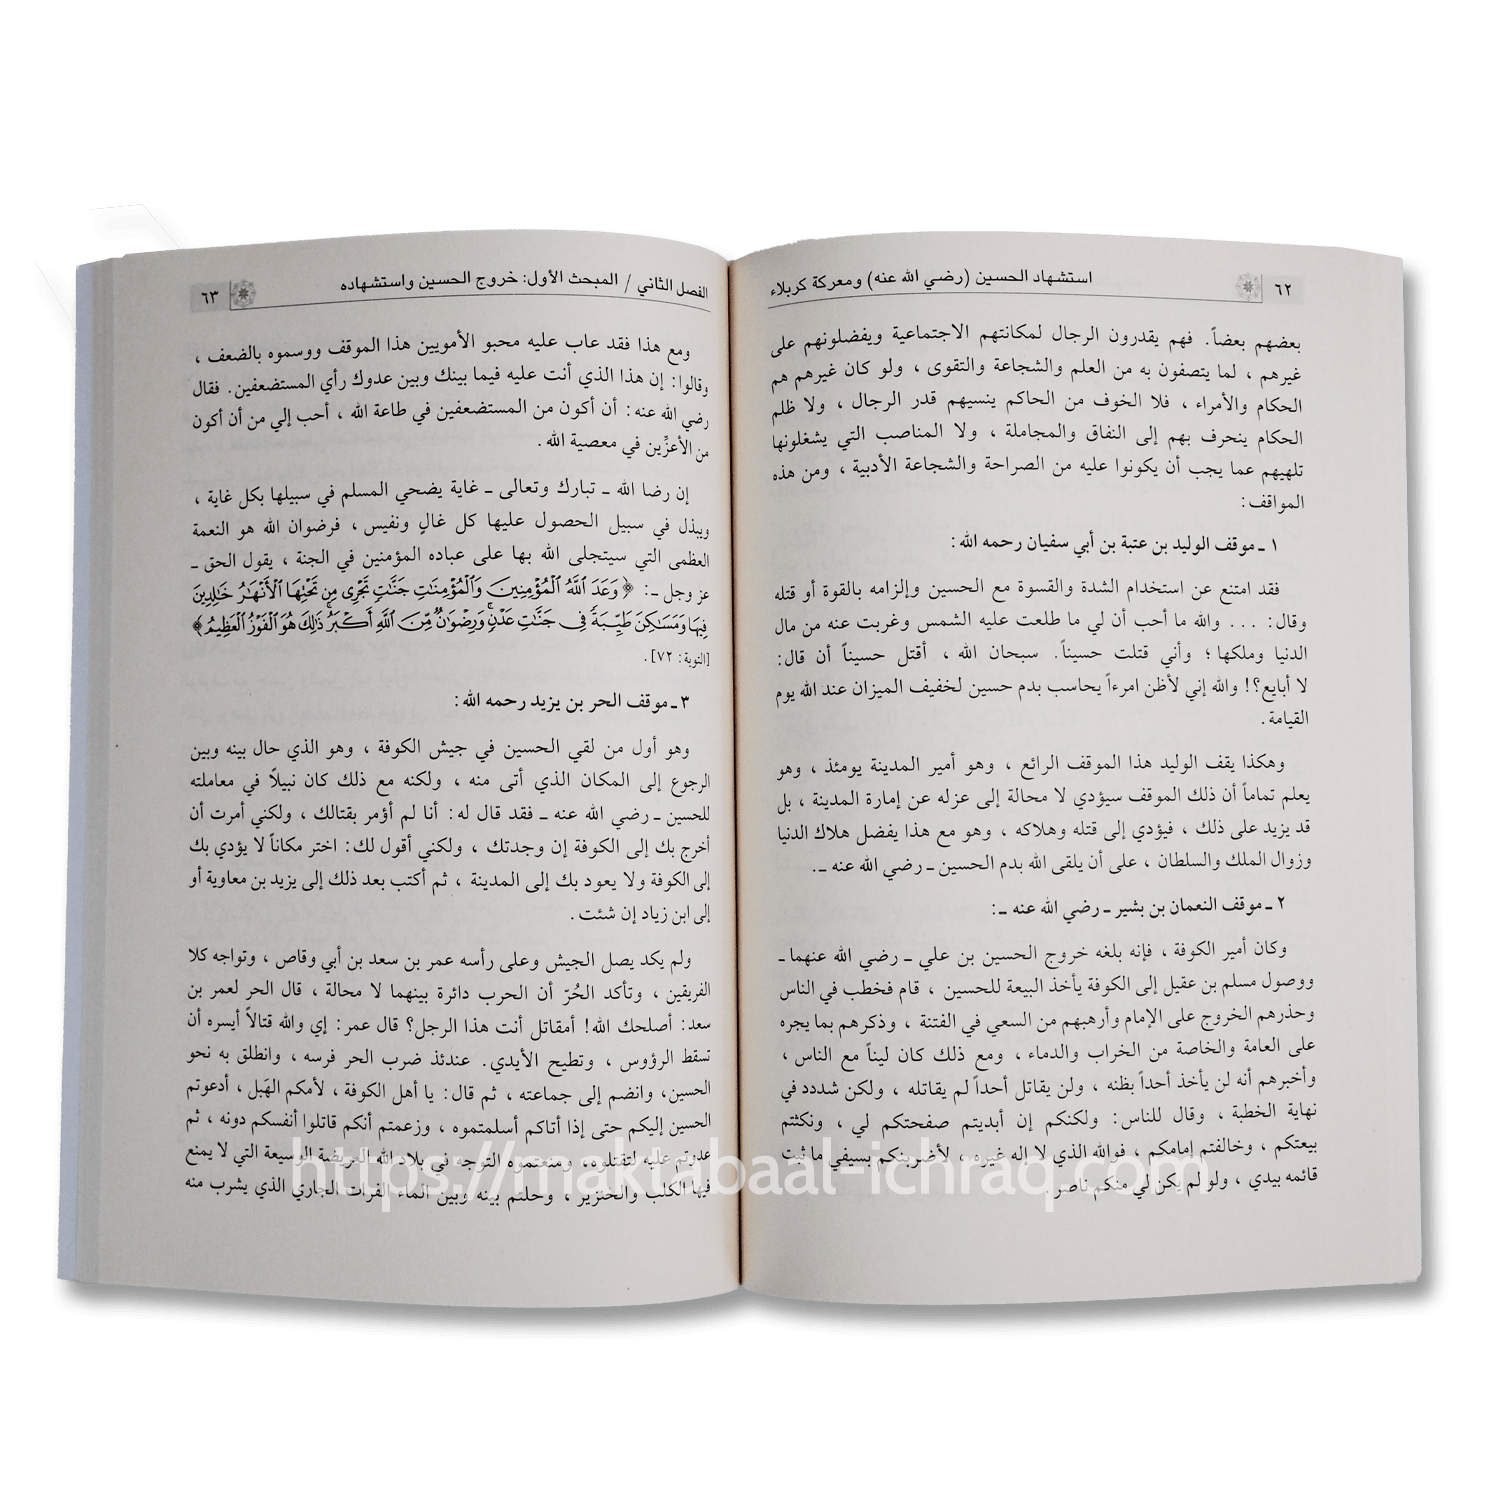 ٦٢
استشهاد الحسين (رضي الله عنه) ومعركة كربلاء
بعضهم بعضاً. فهم يقدرون الرجال لمكانتهم الاجتماعية ويفضلونهم على
غيرهم ، لما يتصفون به من العلم والشجاعة والتقوى ، ولو كان غيرهم هم
الحكام والأمراء ، فلا الخوف من الحاكم ينسيهم قدر الرجال ، ولا ظلم
الحكام ينحرف بهم إلى النفاق والمجاملة ، ولا المناصب التي يشغلونها
تلهيهم عما يجب أن يكونوا عليه من الصراحة والشجاعة الأدبية ، ومن هذه
المواقف:
١ ـ موقف الوليد بن عتبة بن أبي سفيان رحمه الله:
فقد امتنع عن استخدام الشدة والقسوة مع الحسين وإلزامه بالقوة أو قتله
وقال: ... والله ما أحب أن لي ما طلعت عليه الشمس وغربت عنه من مال
الدنيا وملكها؛ وأني قتلت حسيناً. سبحان الله ، أقتل حسيناً أن قال:
لا أبايع؟! والله إني لأظن امرءاً يحاسب بدم حسين لخفيف الميزان عند الله يوم
القيامة.
وهكذا يقف الوليد هذا الموقف الرائع ، وهو أمير المدينة يومئذ ، وهو
يعلم تماماً أن ذلك الموقف سيؤدي لا محالة إلى عزله عن إمارة المدينة ، بل
قد يزيد على ذلك ، فيؤدي إلى قتله وهلاكه ، وهو مع هذا يفضل هلاك الدنيا
وزوال الملك والسلطان ، على أن يلقى الله بدم الحسين ـ رضي الله عنه ـ.
٢ ـ موقف النعمان بن بشير ـ رضي الله عنه ـ:
وكان أمير الكوفة ، فإنه بلغه خروج الحسين بن علي ـ رضي الله عنهما ـ
ووصول مسلم بن عقيل إلى الكوفة يأخذ البيعة للحسين ، قام فخطب في الناس
وحذرهم الخروج على الإمام وأرهبهم من السعي في الفتنة ، وذكرهم بما يجره
على العامة والخاصة من الخراب والدماء ، ومع ذلك كان ليناً مع الناس ،
وأخبرهم أنه لن يأخذ أحداً بظنه ، ولن يقاتل أحداً لم يقاتله ، ولكن شدد في
نهاية الخطبة ، وقال للناس: ولكنكم إن أبديتم صفحتكم لي ، ونكثتم
بيعتكم ، وخالفتم إمامكم ، فوالله الذي لا إله غيره ، لأضربنكم بسيفي ما ثبت
قائمه بيدي ، ولو لم يكن لي منكم ناصر.
الفصل الثاني / المبحث الأول: خروج الحسين واستشهاده
٦٣
ومع هذا فقد عاب عليه محبو الأمويين هذا الموقف ووسموه بالضعف ،
وقالوا: إن هذا الذي أنت عليه فيما بينك وبين عدوك رأي المستضعفين. فقال
رضي الله عنه: أن أكون من المستضعفين في طاعة الله ، أحب إلي من أن أكون
من الأعزِّين في معصية الله .
إن رضا الله ـ تبارك وتعالى ـ غاية يضحي المسلم في سبيلها بكل غاية ،
ويبذل في سبيل الحصول عليها كل غالٍ ونفيس ، فرضوان الله هو النعمة
العظمى التي سيتجلى الله بها على عباده المؤمنين في الجنة ، يقول الحق ـ
عز وجل ـ: ﴿ وَعَدَ ٱللَّهُ ٱلْمُؤْمِنِينَ وَٱلْمُؤْمِنَٰتِ جَنَّٰتٍ تَجْرِى مِن تَحْتِهَا ٱلْأَنْهَٰرُ خَٰلِدِينَ
فِيهَا وَمَسَٰكِنَ طَيِّبَةً فِى جَنَّٰتِ عَدْنٍۚ وَرِضْوَٰنٌ مِّنَ ٱللَّهِ أَكْبَرُۚ ذَٰلِكَ هُوَ ٱلْفَوْزُ ٱلْعَظِيمُ﴾
[التوبة: ٧٢] .
٣ ـ موقف الحر بن يزيد رحمه الله:
وهو أول من لقي الحسين في جيش الكوفة ، وهو الذي حال بينه وبين
الرجوع إلى المكان الذي أتى منه ، ولكنه مع ذلك كان نبيلاً في معاملته
للحسين ـ رضي الله عنه ـ فقد قال له: أنا لم أؤمر بقتالك ، ولكني أمرت أن
أخرج بك إلى الكوفة إن وجدتك ، ولكني أقول لك: اختر مكاناً لا يؤدي بك
إلى الكوفة ولا يعود بك إلى المدينة ، ثم أكتب بعد ذلك إلى يزيد بن معاوية أو
إلى ابن زياد إن شئت.
ولم يكد يصل الجيش وعلى رأسه عمر بن سعد بن أبي وقاص ، وتواجه كلا
الفريقين ، وتأكد الحُرّ أن الحرب دائرة بينهما لا محالة ، قال الحر لعمر بن
سعد: أصلحك الله! أمقاتل أنت هذا الرجل؟ قال عمر: إي والله قتالاً أيسره أن
تسقط الرؤوس ، وتطيح الأيدي. عندئذ ضرب الحر فرسه ، وانطلق به نحو
الحسين، وانضم إلى جماعته ، ثم قال: يا أهل الكوفة ، لأمكم الهَبل ، أدعوتم
الحسين إليكم حتى إذا أتاكم أسلمتموه ، وزعمتم أنكم قاتلوا أنفسكم دونه ، ثم
عدوتم عليه لتقتلوه، ومنعتموه التوجه في بلاد الله العريضة الوسيعة التي لا يمنع
فيها الكلب والخنزير ، وحلتم بينه وبين الماء الفرات الجاري الذي يشرب منه
https://maktabaal-ichraq.com